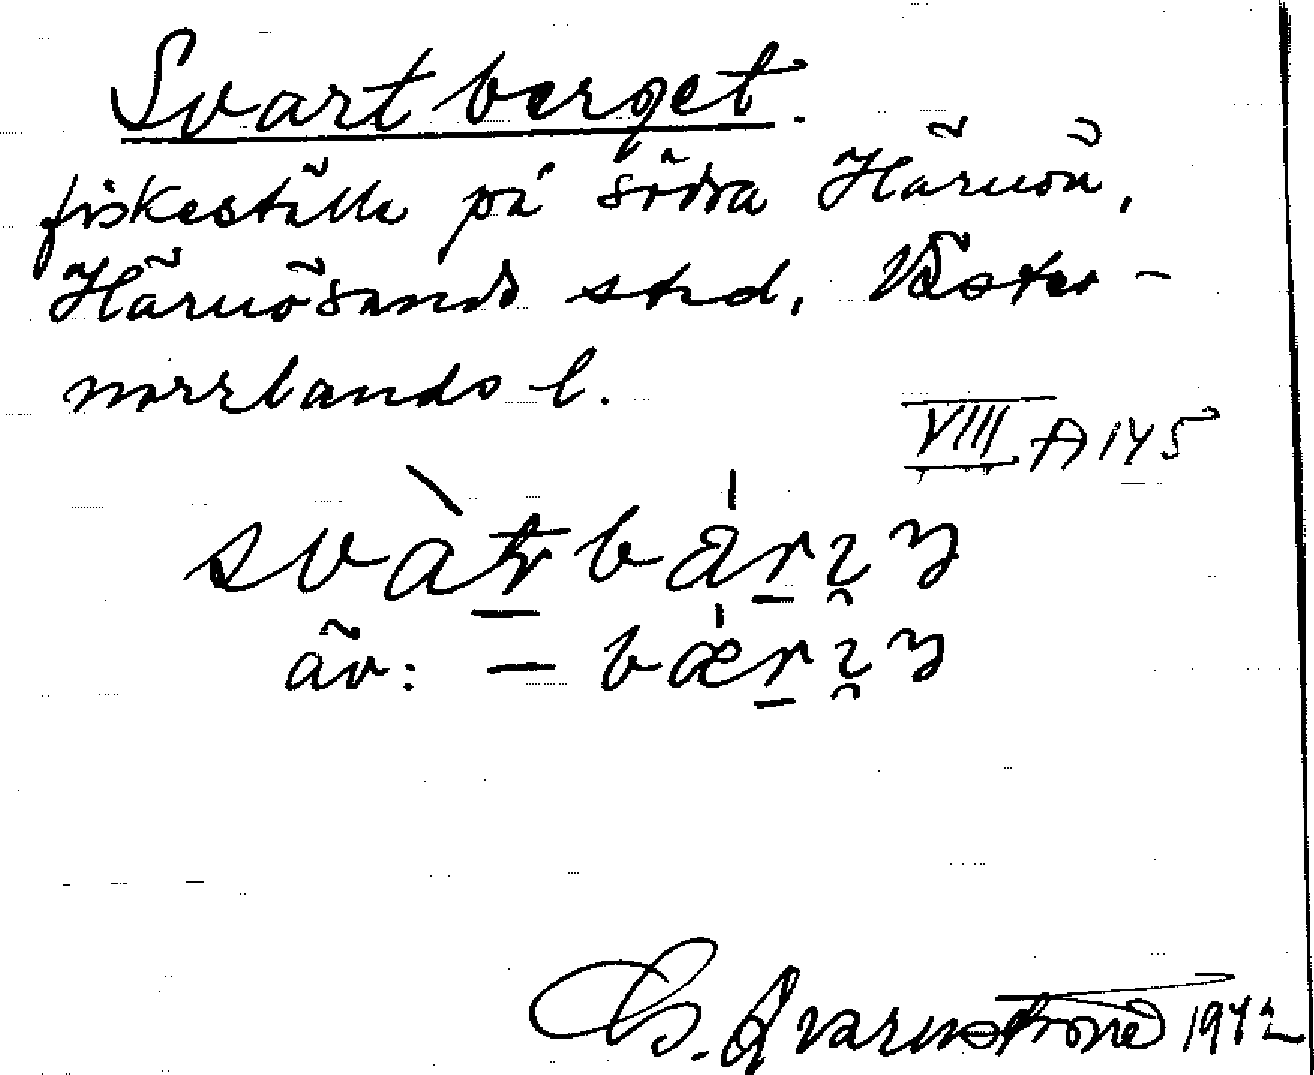 Svartberget.
fiskeställe på södra Härnön,
Härnösands stad, Väster-
norrlands l.
VIII A 145
svàtbárʒ
äv: – bǽrʒ
1972